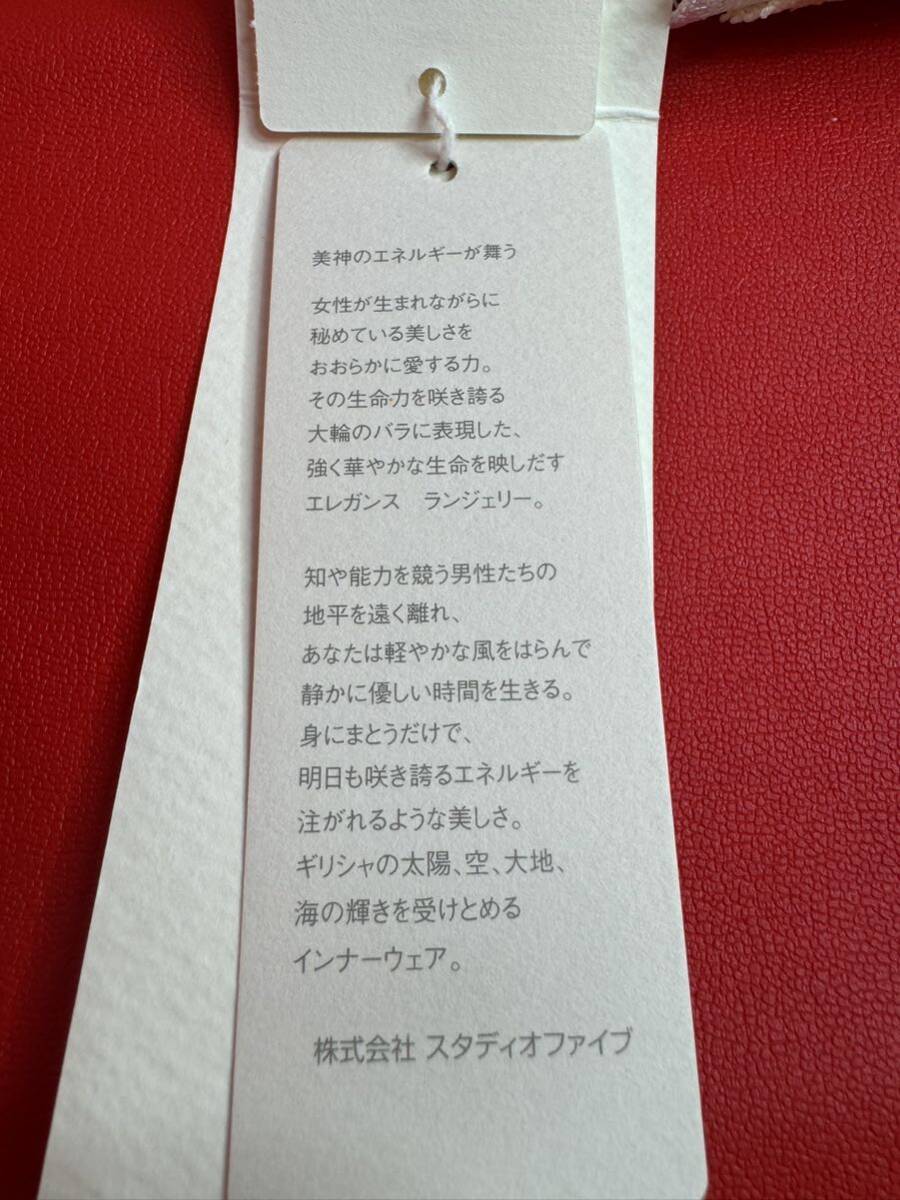 美神のエネルギーが舞う
女性が生まれながらに
秘めている美しさを
おおらかに愛する力。
その生命力を咲き誇る
大輪のバラに表現した、
強く華やかな生命を映しだす
エレガンス　ランジェリー。
知や能力を競う男性たちの
地平を遠く離れ、
あなたは軽やかな風をはらんで
静かに優しい時間を生きる。
身にまとうだけで、
明日も咲き誇るエネルギーを
注がれるような美しさ。
ギリシャの太陽、空、大地、
海の輝きを受けとめる
インナーウェア。
株式会社 スタディオファイブ